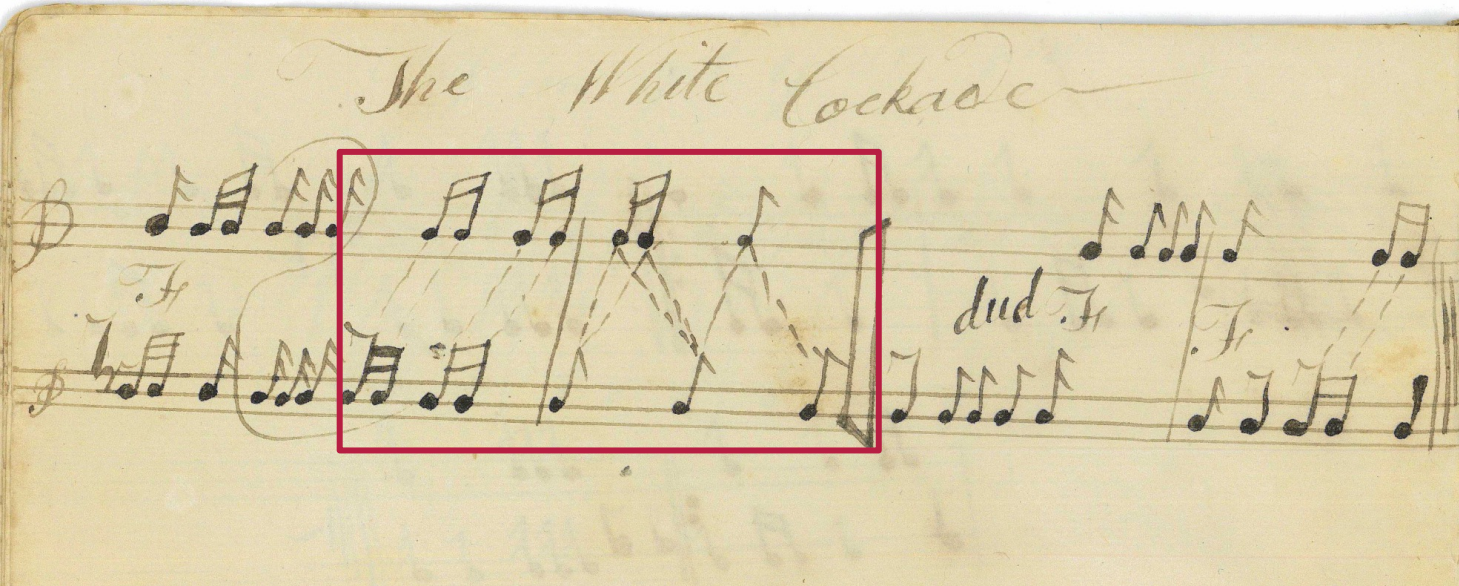 The White Cockade
F
dud F
F